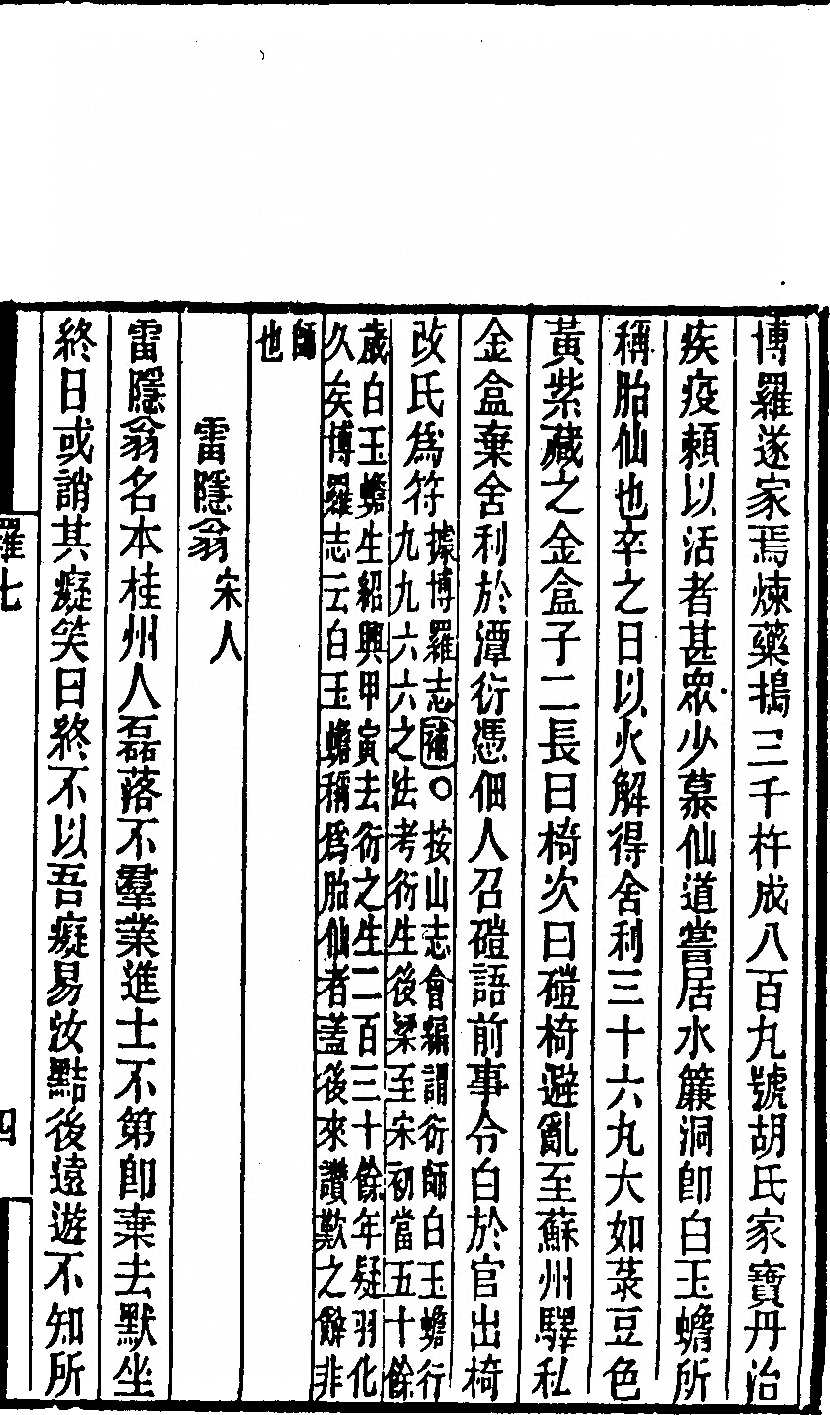 博羅遂家焉煉藥搗三千杵成八百丸號胡氏家寶丹治
疾疫頼以活者甚眾少慕仙道嘗居水簾洞卽白玉蟾所
稱胎仙也卒之日以火解得舍利三十六丸大如菉豆色
黃紫藏之金盒子二長曰椅次曰磑椅避亂至蘇州驛私
金盒棄舍利於潭衍憑佃人召磑語前事令白於官出椅
改氏爲符據博羅志補○按山志會編謂衍師白玉蟾行
九九六六之法考衍生後梁至宋初當五十餘
歲白玉蟾生紹興甲寅去衍之生二百三十餘年疑羽化
久矣博羅志云白玉蟾稱爲胎仙者蓋後來讚歎之辭非
師
也
雷隱翁宋人
雷隱翁名本桂州人磊落不羣業進士不第卽棄去默坐
終日或誚其癡笑曰終不以吾癡易汝黠後遠遊不知所
羅七
四